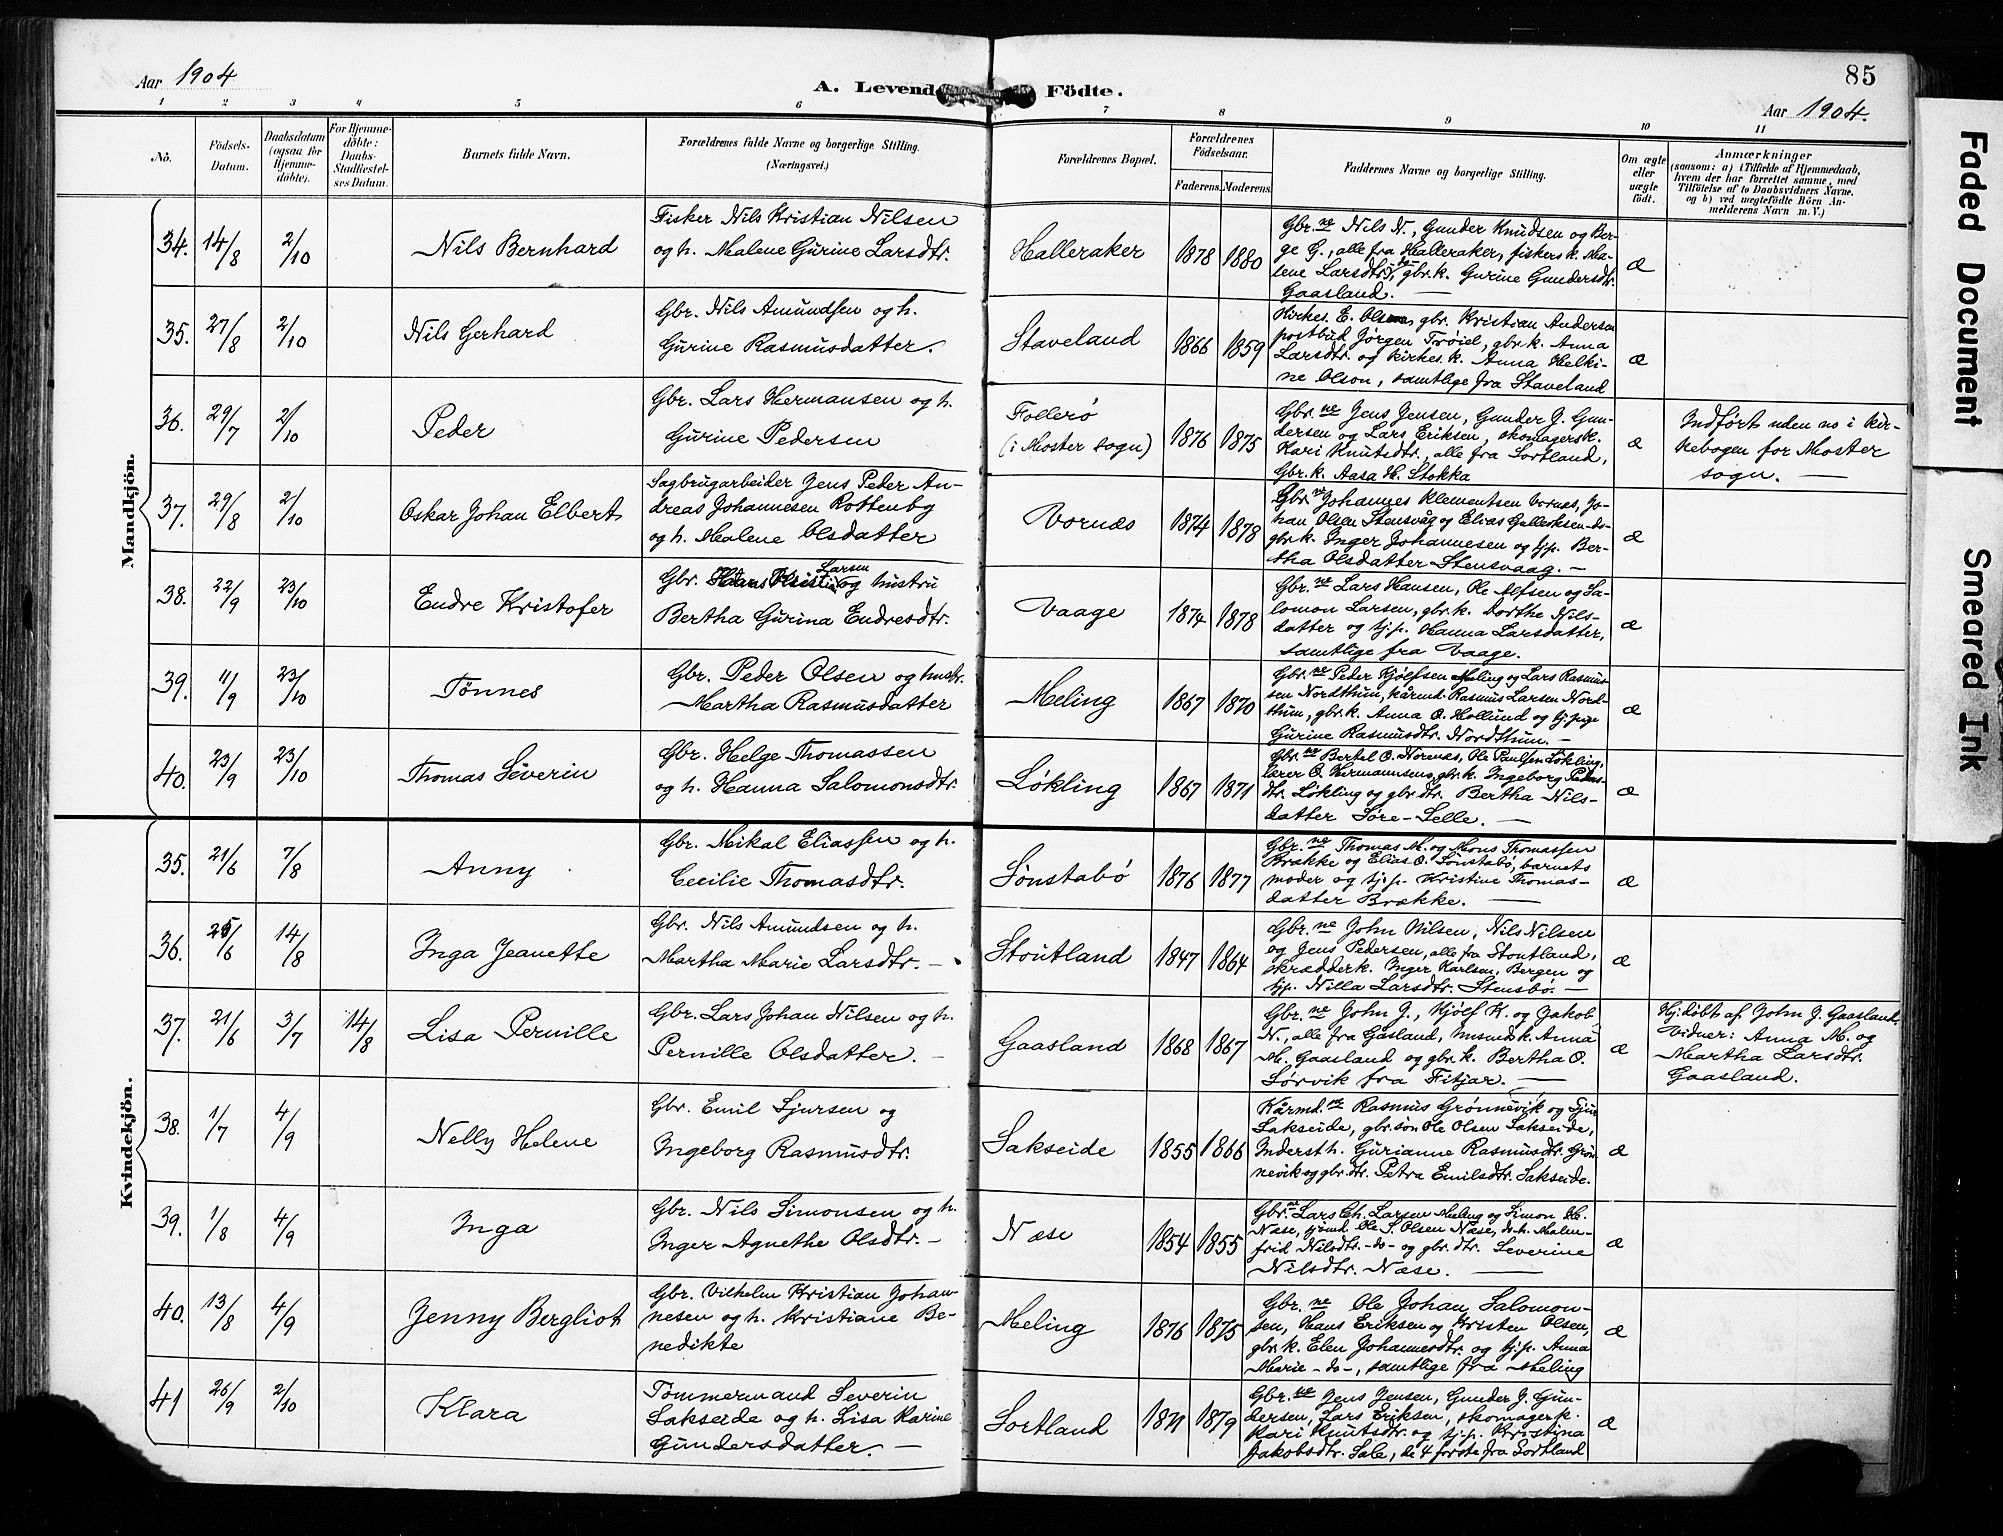 Aar 1904
A. Levende Födte.
85
Aar 1904.
1 2 3 4 5 6 7 8 9 10 11
No.
Födsels-Datum.
Daabsdatum (ogsaa for Hjemme-döbte).
For Hjemme-döbte: Daabs-Stadfæstel-ses Datum.
Barnets fulde Navn.
Forældrenes fulde Navne og borgerlige Stilling. (Næringsvei.)
Forældrenes Bopæl.
Forældrenes Födselsaar.
Faderens. Moderens.
Faddernes Navne og borgerlige Stilling.
Om ægte eller uægte födt.
Anmærkninger
(saasom: a) i Tilfælde af Hjemmedaab,
hvem der har forrettet samme, med
Tilföielse af to Daabsvidners Navne,
og b) ved uægtefödte Börn An-
melderens Navn m. V.)
Mandkjön.
34. 14/8 2/10 Nils Bernhard
Fisker Nils Kristian Nilsen
og h. Malene Gurine Larsdtr.
Halleraker 1878 1880
Gbr.ne Nils N., Gunder Knudsen og Ber-
ge G., alle fra Halleraker, fiskersk. Ma-
lene Larsdtr, gbr.k. Gurine Gundersdtr.
Gaasland. —
æ
35. 27/8 2/10 Nils Gerhard
Gbr. Nils Amundsen og h.
Gurine Rasmusdatter.
Staveland 1866 1859
Kirkes. E. Olsen, gbr. Kristian Andersen
postbud Jørgen Trøiel, gbr.k. Anna
Larsdtr. og kirkes.k. Anna Helki-
ne Olson, samtlige fra Staveland
æ
36. 29/7 2/10 Peder
Gbr. Lars Hermansen og h.
Gurine Pedersen
Follerö
(i Moster sogn)
1876 1875
Gbr.ne Jens Jensen, Gunder J. Gun-
dersen og Lars Eriksen, skomagersk.
Kari Knutsdtr., alle fra Sortland,
Gbr.k. Aasa H. Stokka
æ
Indført uden no i kir-
kebogen for Moster
sogn. —
37. 29/8 2/10 Oskar Johan Elbert
Sagbrugarbeider Jens Peder An-
dreas Johannesen Rottenby
og h. Malene Olsdatter
Vornæs 1874 1878
Gbr.ne Johannes Klementsen Vornæs, Jo-
han Olsen Stensvåg og Elias Gulleiksen -do-
gbr.k. Inger Johannesen og tj.p. Ber-
tha Olsdatter Stensvaag. —
æ
38. 22/9 23/10 Endre Kristofer
Gbr. Larsen og hustru
Bertha Gurina Endresdtr.
Vaage 1874 1878
Gbr.ne Lars Hansen, Ole Alfsen og Sa-
lomon Larsen, gbr.k. Dorthe Nils-
datter og tj.p. Hanna Larsdatter,
samtlige fra Vaage.
æ
39. 11/9 23/10 Tønnes
Gbr. Peder Olsen og hustr.
Martha Rasmusdatter
Meling 1867 1870
Gbr.ne Peder Kjølfsen Meling og Lars Rasmus-
sen Nordthun, kårmd. Rasmus Larsen Nord-
thun, gbr.k. Anna O. Hollund og tj.pige
Gurine Rasmusdtr. Nordthun. —
æ
40. 23/9 23/10 Thomas Severin
Gbr. Helge Thomassen
og h. Hanna Salomonsdtr.
Løkling 1867 1871
Gbr.ne Bertel O. Norenæs, Ole Paulsen Løkling,
lærer O. Hermannsens, gbr.k. Ingeborg Peders-
dtr. Løkling og gbr.dtr. Bertha Nils-
datter Søre-Selle. —
æ
Kvindekjön.
35. 21/6 7/8 Anny
Gbr. Mikal Eliassen og h.
Cecilie Thomasdtr.
Sønstabø 1876 1877
Gbr.ne Thomas M. og Mons Thomassen
Brække og Elias O. Sønstabø, barnets
moder og tj.p. Kristine Thomas-
datter Brække. —
æ
36. 25/6 14/8 Inga Jeanette
Gbr. Nils Amundsen og h.
Martha Marie Larsdtr. —
Stoutland 1847 1864
Gbr.ne John Nilsen, Nils Nilsen
og Jens Pedersen, alle fra Stoutland,
skrædderk. Inger Karlsen, Bergen og
tj.p. Nilla Larsdtr. Stensbö. —
æ
37. 21/6 3/7 14/8 Lisa Pernille
Gbr. Lars Johan Nilsen og h.
Pernille Olsdatter. —
Gaasland 1868 1867
Gbr.ne John J., Kjølf K. og Jakob
N., alle fra Gåsland, husmdk. Anna
M. Gaasland og gbr.k. Bertha O.
Sørvik fra Fitjar. —
æ
Hj.døbt af John J. Gaasland.
Vidner: Anna M. og
Martha Larsdtr.
Gaasland.
38. 1/7 4/9 Nelly Helene
Gbr. Emil Sjursen og
Ingeborg Rasmusdtr.
Sakseide 1855 1866
Kårmd.ne Rasmus Grønnevik og Sjur
Sakseide, gbr.søn Ole Olsen Sakseide,
Inderst h. Gurianne Rasmusdtr. Grøn-
nevik og gbr.dtr. Petra Emilsdtr. Sakseide.
æ
39. 1/8 4/9 Inga
Gbr. Nils Simonsen og h.
Inger Agnethe Olsdtr. —
Næse 1854 1855
Gbr.ne Lars Ch. Larsen Meling og Simon H.
Næse, Ole S. Olsen Næse, do. h. Malm-
frid Nilsdtr. -do- og gbr.dtr. Severine
Nilsdtr. Næse. —
æ
40. 13/8 4/9 Jenny Bergliot
Gbr. Vilhelm Kristian Johan-
nesen og h. Kristiane Be-
nedikte
Meling 1876 1875
Gbr.ne Ole Johan Salomon-
sen, Hans Eriksen og Kristen Olsen,
gbr.k. Elen Johannesdtr. og tj.p. Anna
Marie -do-, samtlige fra Meling
æ
41 26/9 2/10 Klara
Tømmermand Severin
Sakseide og h. Lisa Karine
Gundersdatter. —
Sortland 1871 1879
Gbr.ne Jens Jensen, Gunder J. Gun-
dersen, Lars Eriksen, skomagerk.
Kari Knutsdtr. og tj.p. Kristina
Jakobsdtr. Sale, de 4 første fra Sortland
æ
Faded Document
Smeared Ink